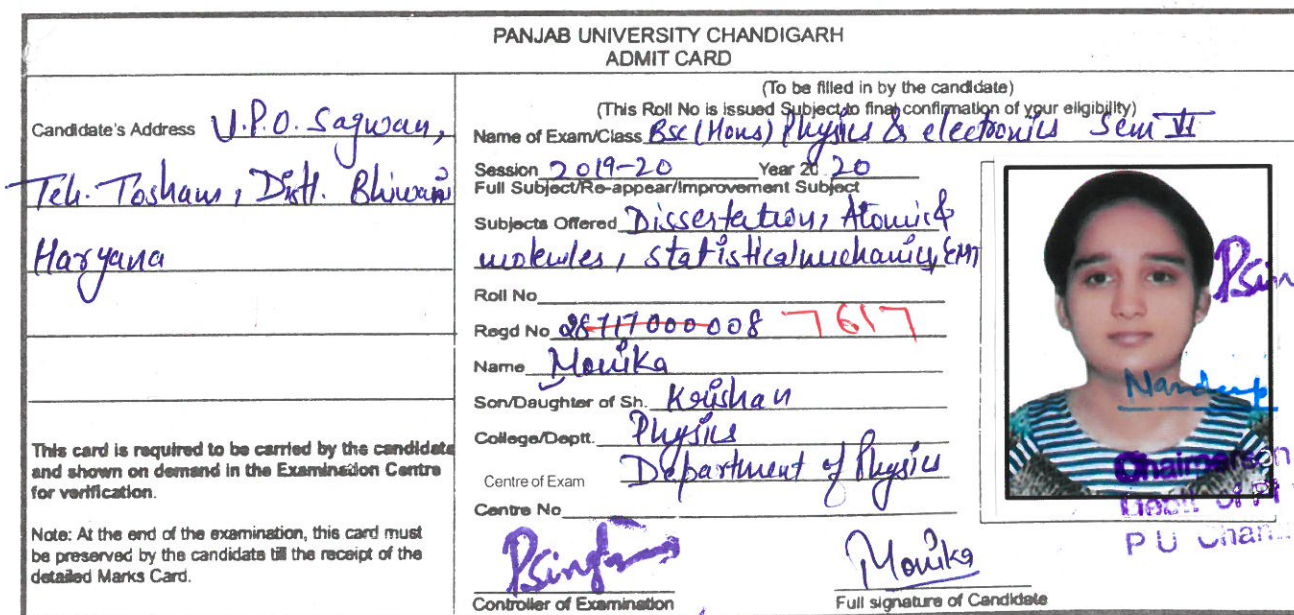 PANJAB UNIVERSITY CHANDIGARH
ADMIT CARD
Candidate's Address V.P.O. Sagwan,
Teh. Tosham, Distt. Bhiwani
Haryana
This card is required to be carried by the candidate
and shown on demand in the Examination Centre
for verification.
Note: At the end of the examination, this card must
be preserved by the candidate till the receipt of the
detailed Marks Card.
(To be filled in by the candidate)
(This Roll No is issued Subject to final confirmation of your eligibility)
Name of Exam/Class Bsc (Hons) Physics & electronics Sem VI
Session 2019-20 Year 20 20
Full Subject/Re-appear/Improvement Subject
Subjects Offered Dissertation, Atomic &
molecules, statistical mechanics, EMT
Roll No
Regd No 28717000008 7617
Name Monika
Son/Daughter of Sh. Krishan
College/Deptt. Physics
Centre of Exam Department of Physics
Centre No
PSingh
Controller of Examination
Monika
Full signature of Candidate
PSin
Chairperson
Deptt of P
P U Chan